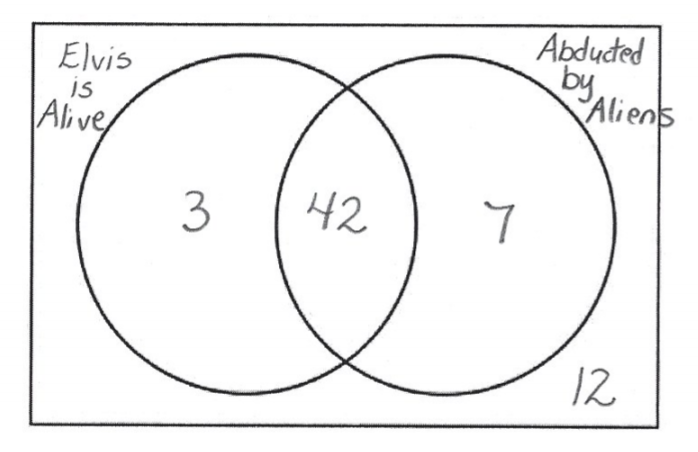 Elvis
is
Alive
Abducted
by
Aliens
3
42
7
12